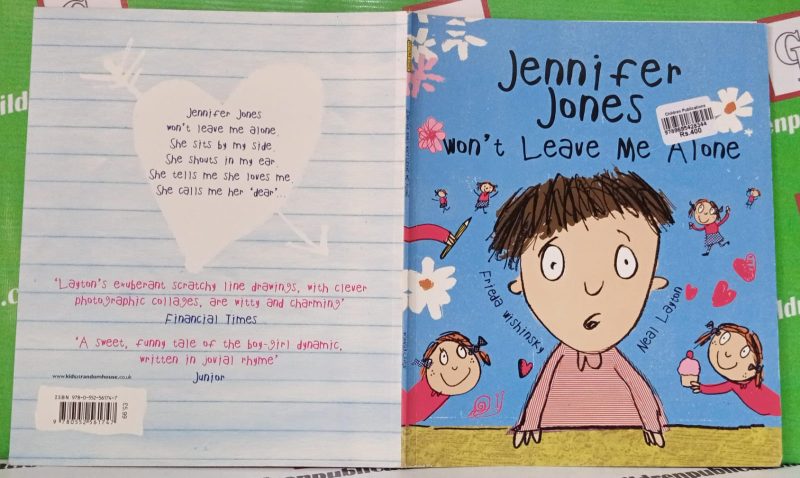 Jennifer Jones
won't leave me alone.
She sits by my side.
She shouts in my ear.
She tells me she loves me.
She calls me her 'dear'...
'Layton's exuberant scratchy line drawings, with clever
photographic collages, are witty and charming'
Financial Times
'A sweet, funny tale of the boy-girl dynamic,
written in jovial rhyme'
Junior
www.kidsatrandomhouse.co.uk
ISBN 978-0-552-56174-7
9 780552 561747
Jennifer
Jones
won't Leave Me Alone
Children Publications
Rs.400
Frieda Wishinsky
Neal Layton